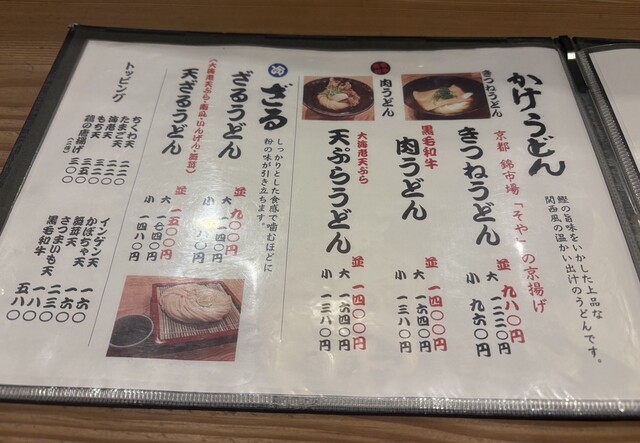 かけうどん
鰹の旨味をいかした上品な
関西風の温かい出汁のうどんです。
きつねうどん
京都 錦市場「そや」の京揚げ
きつねうどん
並 九八〇円
大 一二二〇円
小 九六〇円
肉うどん
黒毛和牛
肉うどん
並 一四〇〇円
大 一六四〇円
小 一三八〇円
大海老天ぷら
天ぷらうどん
並 一四〇〇円
大 一六四〇円
小 一三八〇円
冷
ざる
しっかりとした食感で噛むほどに
粉の味が引き立ちます。
ざるうどん
並 九〇〇円
大 一一四〇円
小 八八〇円
天ざるうどん
並 一五〇〇円
大 一七四〇円
小 一四八〇円
トッピング
ちくわ天 一二〇
たまご天 一二〇
海老天 三八〇
もち天 一二〇
鶏の唐揚げ(二個) 三五〇
インゲン天 一六〇
かぼちゃ天 一六〇
舞茸天 二三〇
さつまいも天 一八〇
黒毛和牛 五八〇